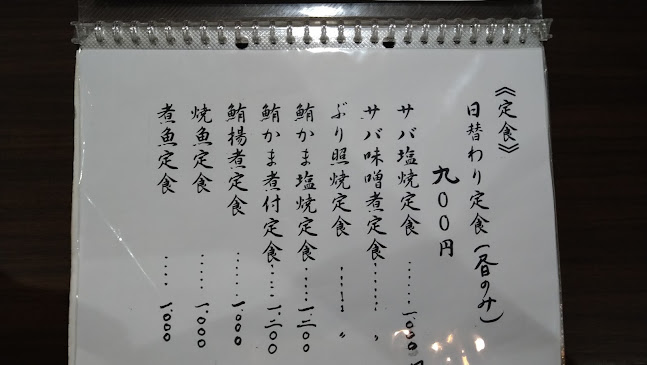 《定食》
日替わり定食(昼のみ)
九〇〇円
サバ塩焼定食……一、〇〇〇円
サバ味噌煮定食……〃
ぶり照焼定食……〃
鮪かま塩焼定食……一、二〇〇
鮪かま煮付定食……一、二〇〇
鮪揚煮定食……一、〇〇〇
焼魚定食……一、〇〇〇
煮魚定食……一、〇〇〇